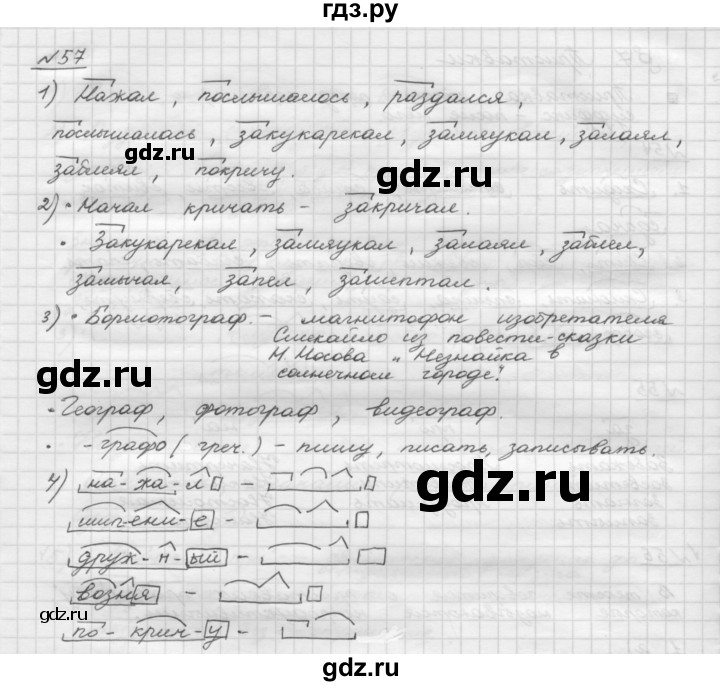 гдз.ру
№57
1) Нажал, послышалось, раздался,
послышалась, закукарекал, замяукал, залаял,
gdz.ru
gdz.ru
заблеял, покричу.
2) • Начал кричать - закричал.
• Закукарекал, замяукал, залаял, заблеял,
замычал, запел, зашептал.
3) • Бормотограф. - магнитофон изобретателя
Смекайло из повести-сказки
gdz.ru
Н. Носова „Незнайка в
солнечном городе".
• Географ, фотограф, видеограф.
• -графо (греч.) - пишу, писать, записывать.
4) на-жа-л -
gdz.ru
шип-ени-е -
друж-н-ый -
возня -
gdz.ru
gdz.ru
по-крич-у -
gdz.ru